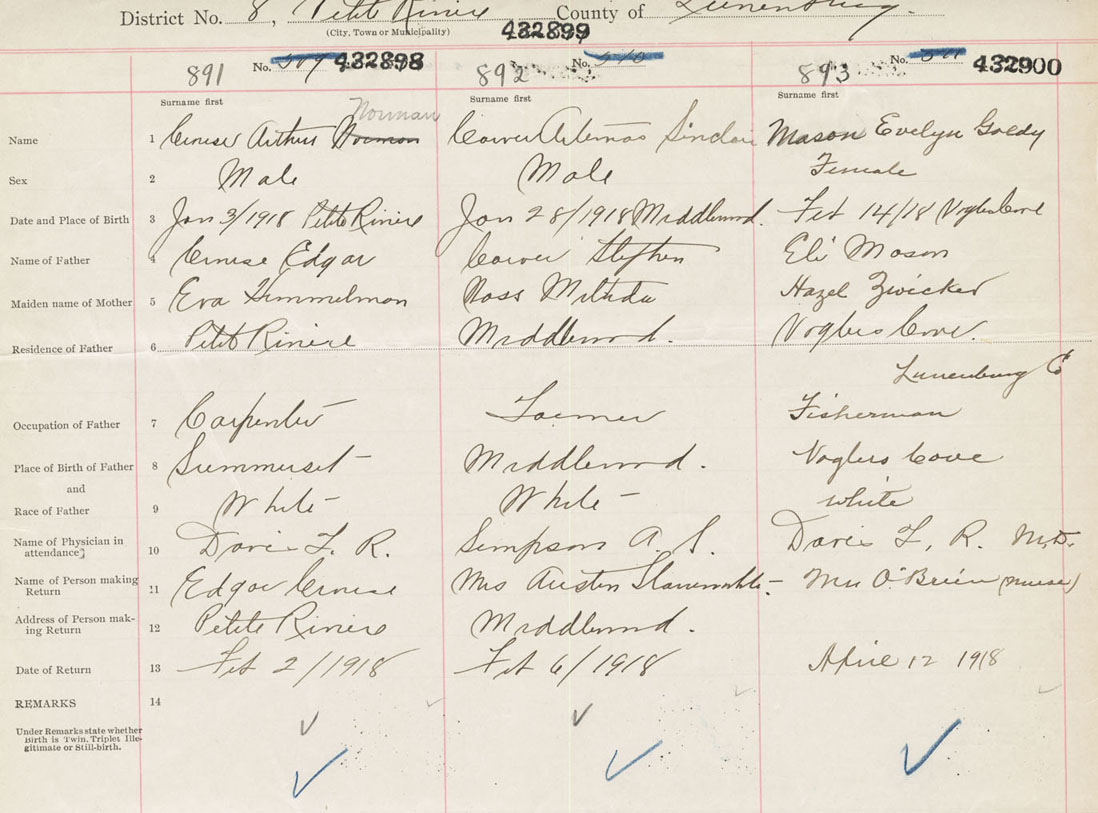 District No. 8, Petite Riviere County of Lunenburg.
(City, Town or Municipality)
432899
891 No. 509 432898 892 No. 510 893 No. 432900
Surname first Surname first Surname first
Norman
Name 1 Crouse Arthur Norman Artemas Sinclair Mason Evelyn Goldy
Sex 2 Male Male Female
Date and Place of Birth 3 Jan 3/1918 Petite Riviere Jan 28/1918 Middlewood. Feb 14/18 Voglers Cove
Name of Father 4 Crouse Edgar Stephen Eli Mason
Maiden name of Mother 5 Eva Himmelman Ross Hazel Zwicker
Residence of Father 6 Petite Riviere Middlewood. Voglers Cove.
Lunenburg Co
Occupation of Father 7 Carpenter Farmer Fisherman
Place of Birth of Father 8 Summerset Middlewood. Voglers Cove
and
Race of Father 9 White White White
Name of Physician in
attendance 10 Davis F. R. Simpson A. S. Davis F. R. M.D.
Name of Person making
Return 11 Edgar Crouse Mrs Austin Mrs O'Brien (nurse)
Address of Person mak-
ing Return 12 Petite Riviere Middlewood.
Date of Return 13 Feb 2/1918 Feb 6/1918 April 12 1918
REMARKS 14
Under Remarks state whether
Birth is Twin, Triplet Ille-
gitimate or Still-birth.